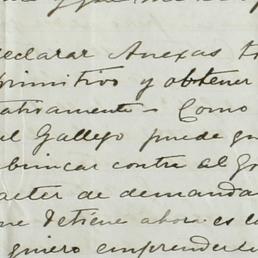 declarar Anexas
primitivo y obtener
tativamente - Como
el Gallego puede
brincar contra el
acter de demanda
ue detiene ahora es
quiero emprenderla